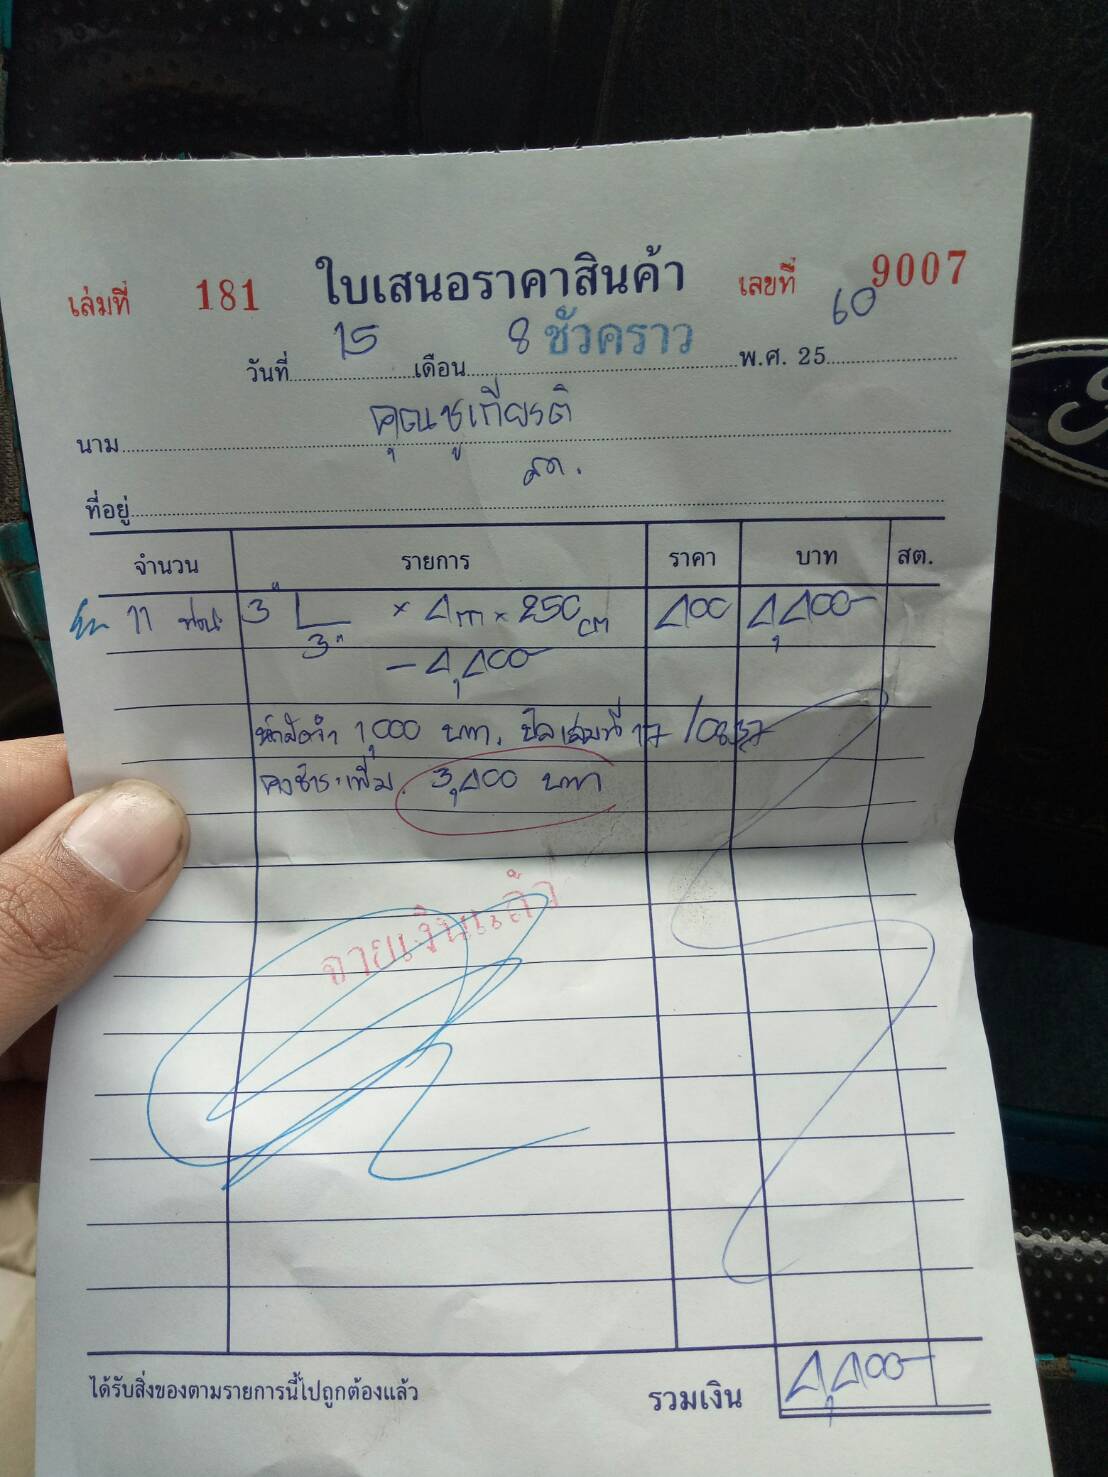 เล่มที่ 181 ใบเสนอราคาสินค้า เลขที่ 9007
ชั่วคราว
วันที่ 15 เดือน 8 พ.ศ. 2560
นาม คุณชูเกียรติ
ที่อยู่ สด.
จำนวน รายการ ราคา บาท สต.
11 ท่อน 3" L 3" × 4m × 250cm 400 4,400-
- 4,400-
หักมัดจำ 1,000 บาท, บิลเล่มที่ 17 /0837
คงชำระเพิ่ม 3,400 บาท
จ่ายเงินแล้ว
ได้รับสิ่งของตามรายการนี้ไปถูกต้องแล้ว
รวมเงิน 4,400-